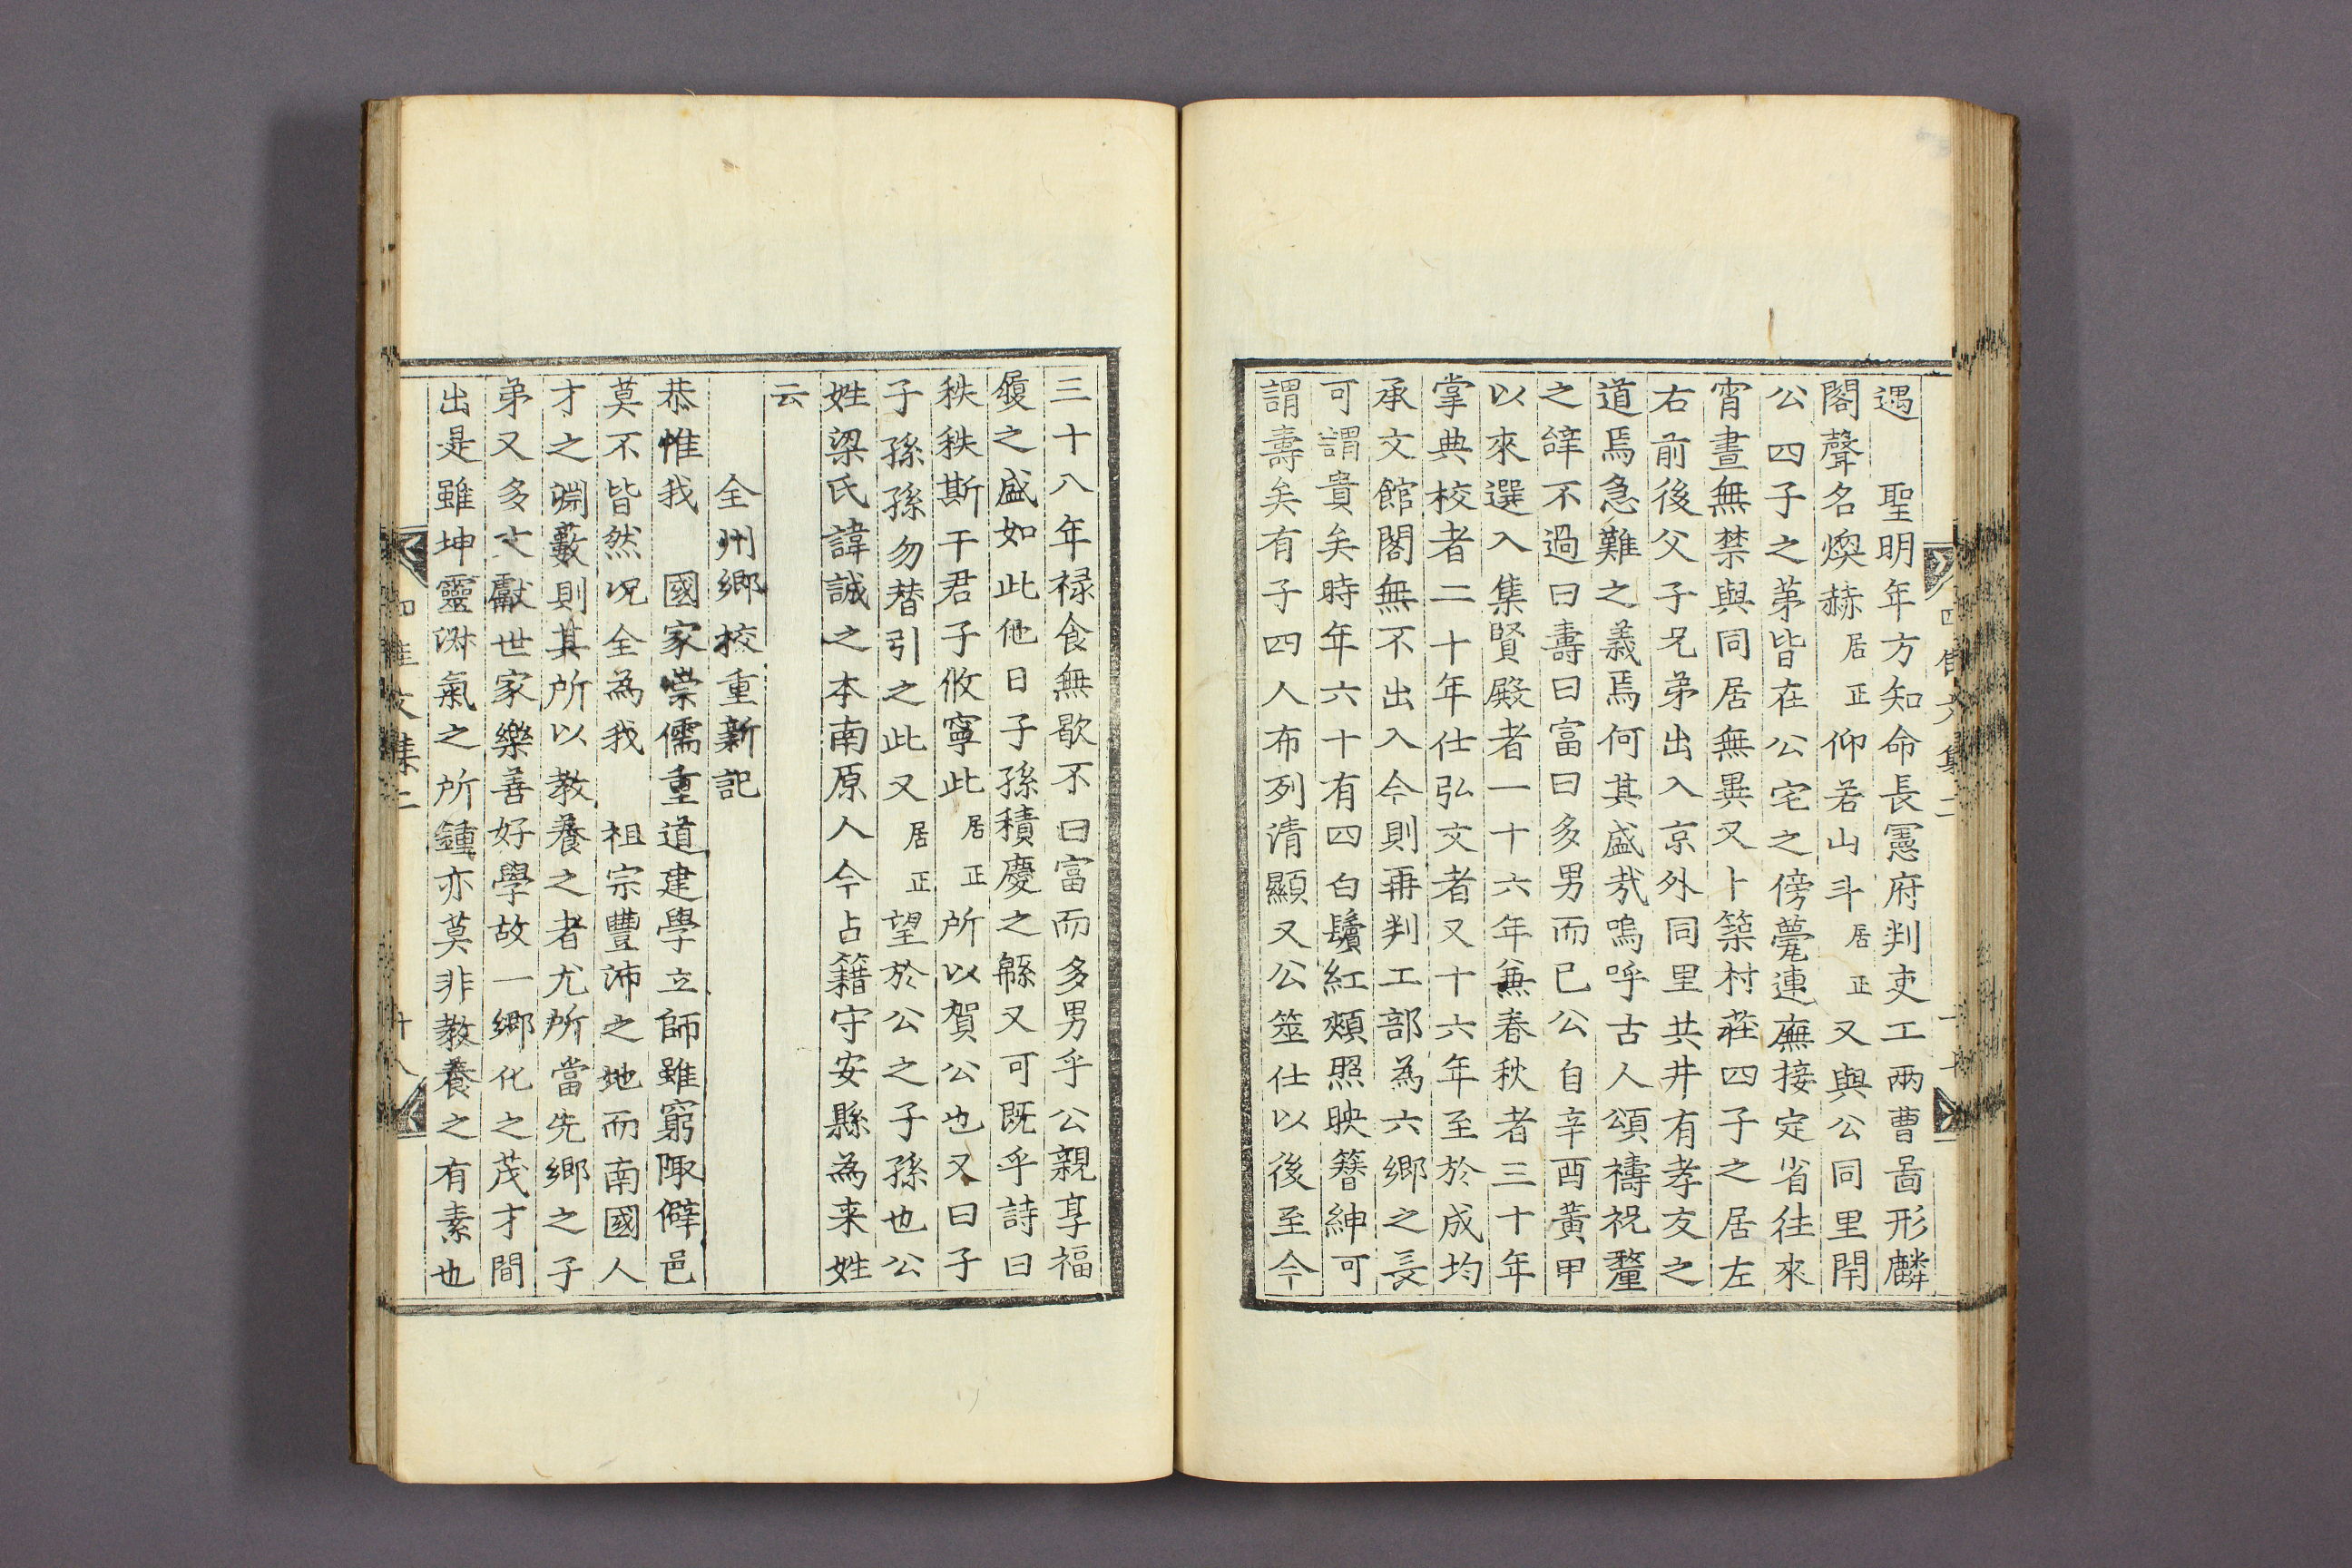 遇　聖明年方知命長憲府判吏工兩曹啚形麟
閣聲名煥赫居正仰若山斗居正又與公同里閈
公四子之第皆在公宅之傍甍連廡接定省往來
宵晝無禁與同居無異又卜築村莊四子之居左
右前後父子兄弟出入京外同里共井有孝友之
道焉急難之義焉何其盛哉嗚呼古人頌禱祝釐
之辝不過曰壽曰富曰多男而已公自辛酉黃甲
以來選入集賢殿者一十六年兼春秋者三十年
掌典校者二十年仕弘文者又十六年至於成均
承文館閣無不出入今則再判工部為六鄉之長
可謂貴矣時年六十有四白鬚紅頰照映簪紳可
謂壽矣有子四人布列清顯又公筮仕以後至今
三十八年禄食無歇不曰富而多男乎公親享福
履之盛如此他日子孫積慶之緜又可既乎詩曰
秩秩斯干君子攸寧此居正所以賀公也又曰子
子孫孫勿替引之此又居正望於公之子孫也公
姓梁氏諱誠之本南原人今占籍守安縣為来姓
云
全州鄉校重新記
恭惟我　國家崇儒重道建學立師雖窮陬僻邑
莫不皆然况全為我　祖宗豐沛之地而南國人
才之淵藪則其所以教養之者尤所當先鄉之子
弟又多文獻世家樂善好學故一鄉化之茂才間
出是雖坤靈淋氣之所鍾亦莫非教養之有素也
四佳文集二
十八